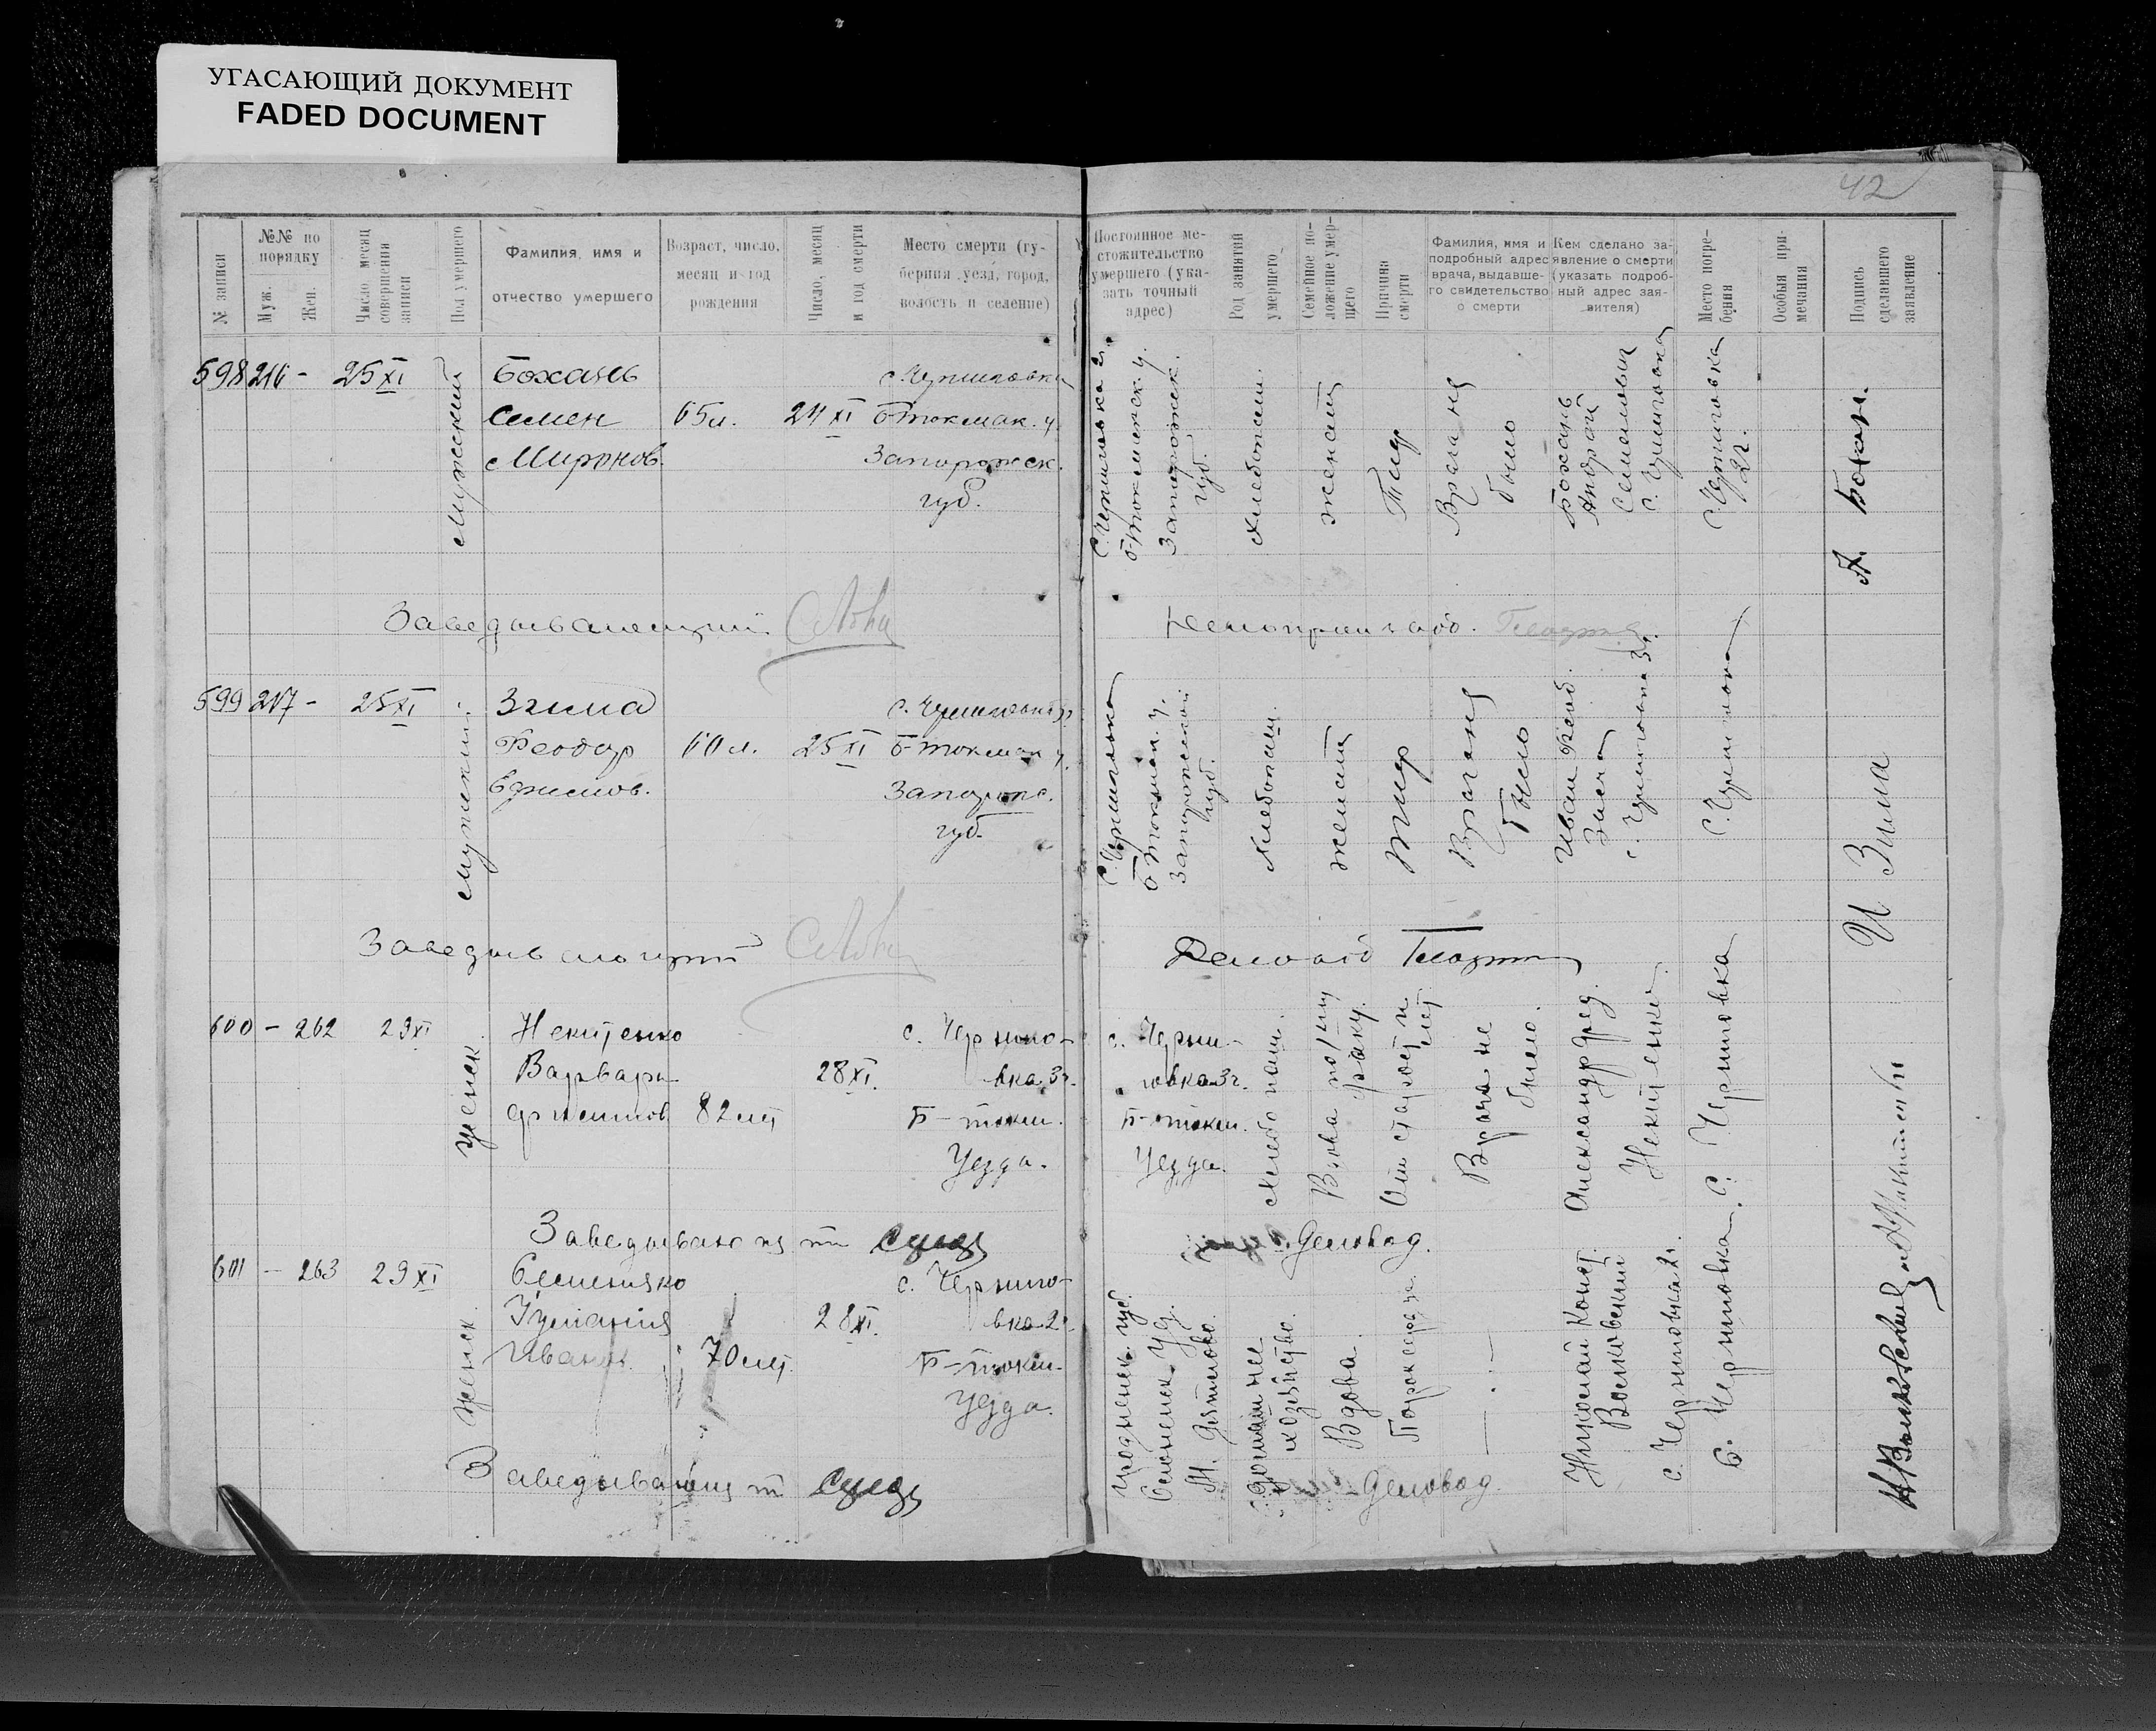 УГАСАЮЩИЙ ДОКУМЕНТ
FADED DOCUMENT
42
№ записи
№№ по порядку
Муж.
Жен.
Число, месяц совершения записи
Пол умершего
Фамилия, имя и
отчество умершего
Возраст, число,
месяц и год
рождения
Число, месяц
и год смерти
Место смерти (гу-
берния, уезд, город,
волость и селение)
Постоянное ме-
стожительство
умершего (ука-
зать точный
адрес)
Род занятий
умершего
Семейное по-
ложение умер-
щего
Причина
смерти
Фамилия, имя и
подробный адрес
врача, выдавше-
го свидетельство
о смерти
Кем сделано за-
явление о смерти
(указать подроб-
ный адрес зая-
вителя)
Место погре-
бения
Особыя при-
мечания
Подпись
сделавшего
заявление
598 216 - 25 XI
мужский
Бохань
Семен
Миронов.
65 л.
24 XI
с. Черниговка
Б-токмак. у.
Запорожск.
губ.
с. Черниговка 2 г.
Б-токмакск. у.
Запорожск.
губ.
хлебопаш.
женат
Тиф
Врача не
было
Бохань
Андрей
Семенович
с. Черниговка
с. Черниговка
2 г.
А. Бохан.
Заведывающий
599 217 - 25 XI
мужский
Зима
Феодор
Ефимов.
60 л.
25 XI
с. Черниговка 3 г.
Б-токмак у.
Запорож.
губ.
с. Черниговка
Б-токмак. у.
Запорожской
губ.
хлебопаш.
женат
Тиф
Врача не
было
Иван Феод.
Зима
с. Черниговка 3 г.
с. Черниговка
И Зима
Заведывающий
600 - 262 29 XI
женск.
Некитенко
Варвара
82 лет
28 XI.
с. Черниго-
вка 3 г.
Б-токм.
Уезда.
с. Черни-
говка 3 г.
Б-токм.
Уезда.
хлебопаш.
От старости
лет
Врача не
было.
Александр Фед.
Некитенко
с. Черниговка
Заведывающий
Деловод.
601 - 263 29 XI
женск.
Иванов.
70 лет.
28 XI.
с. Черниго-
вка 2 г.
Б-токм.
Уезда.
Гродненск. губ.
домашнее
хозяйство
Вдова
Порок сердца
Николай Конст.
Волковский
с. Черниговка 2 г.
с. Черниговка
Заведывающий
Деловод.